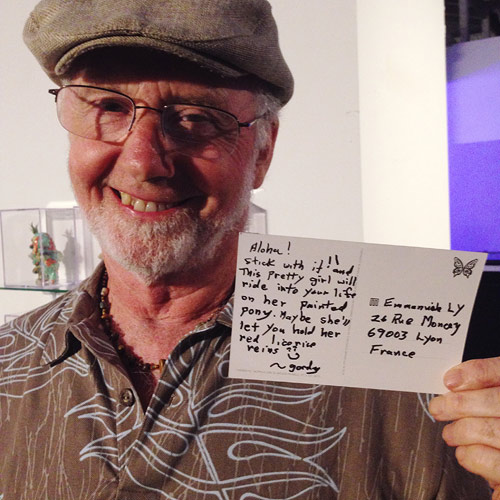 Aloha!
stick with it!! and
This pretty girl will
ride into your life
on her painted
pony. Maybe she'll
let you hold her
red licorice
reins
~ gordy
Emmanuide LY
26 Rue Moncey
69003 Lyon
France